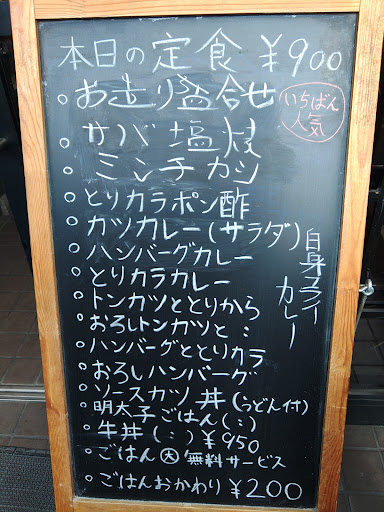 本日の定食 ¥900
。お造り盛合せ
いちばん
人気
サバ塩焼
ミンチカツ
。とりカラポン酢
。カツカレー(サラダ)
。ハンバーグカレー
。とりカラカレー
白身フライ
カレー
。トンカツととりから
。おろしトンカツと:
。ハンバーグととりカラ
。おろしハンバーグ
。ソースカツ丼(うどん付)
。明太子ごはん(:)
。牛丼(:)¥950
。ごはん大無料サービス
。ごはんおかわり ¥200